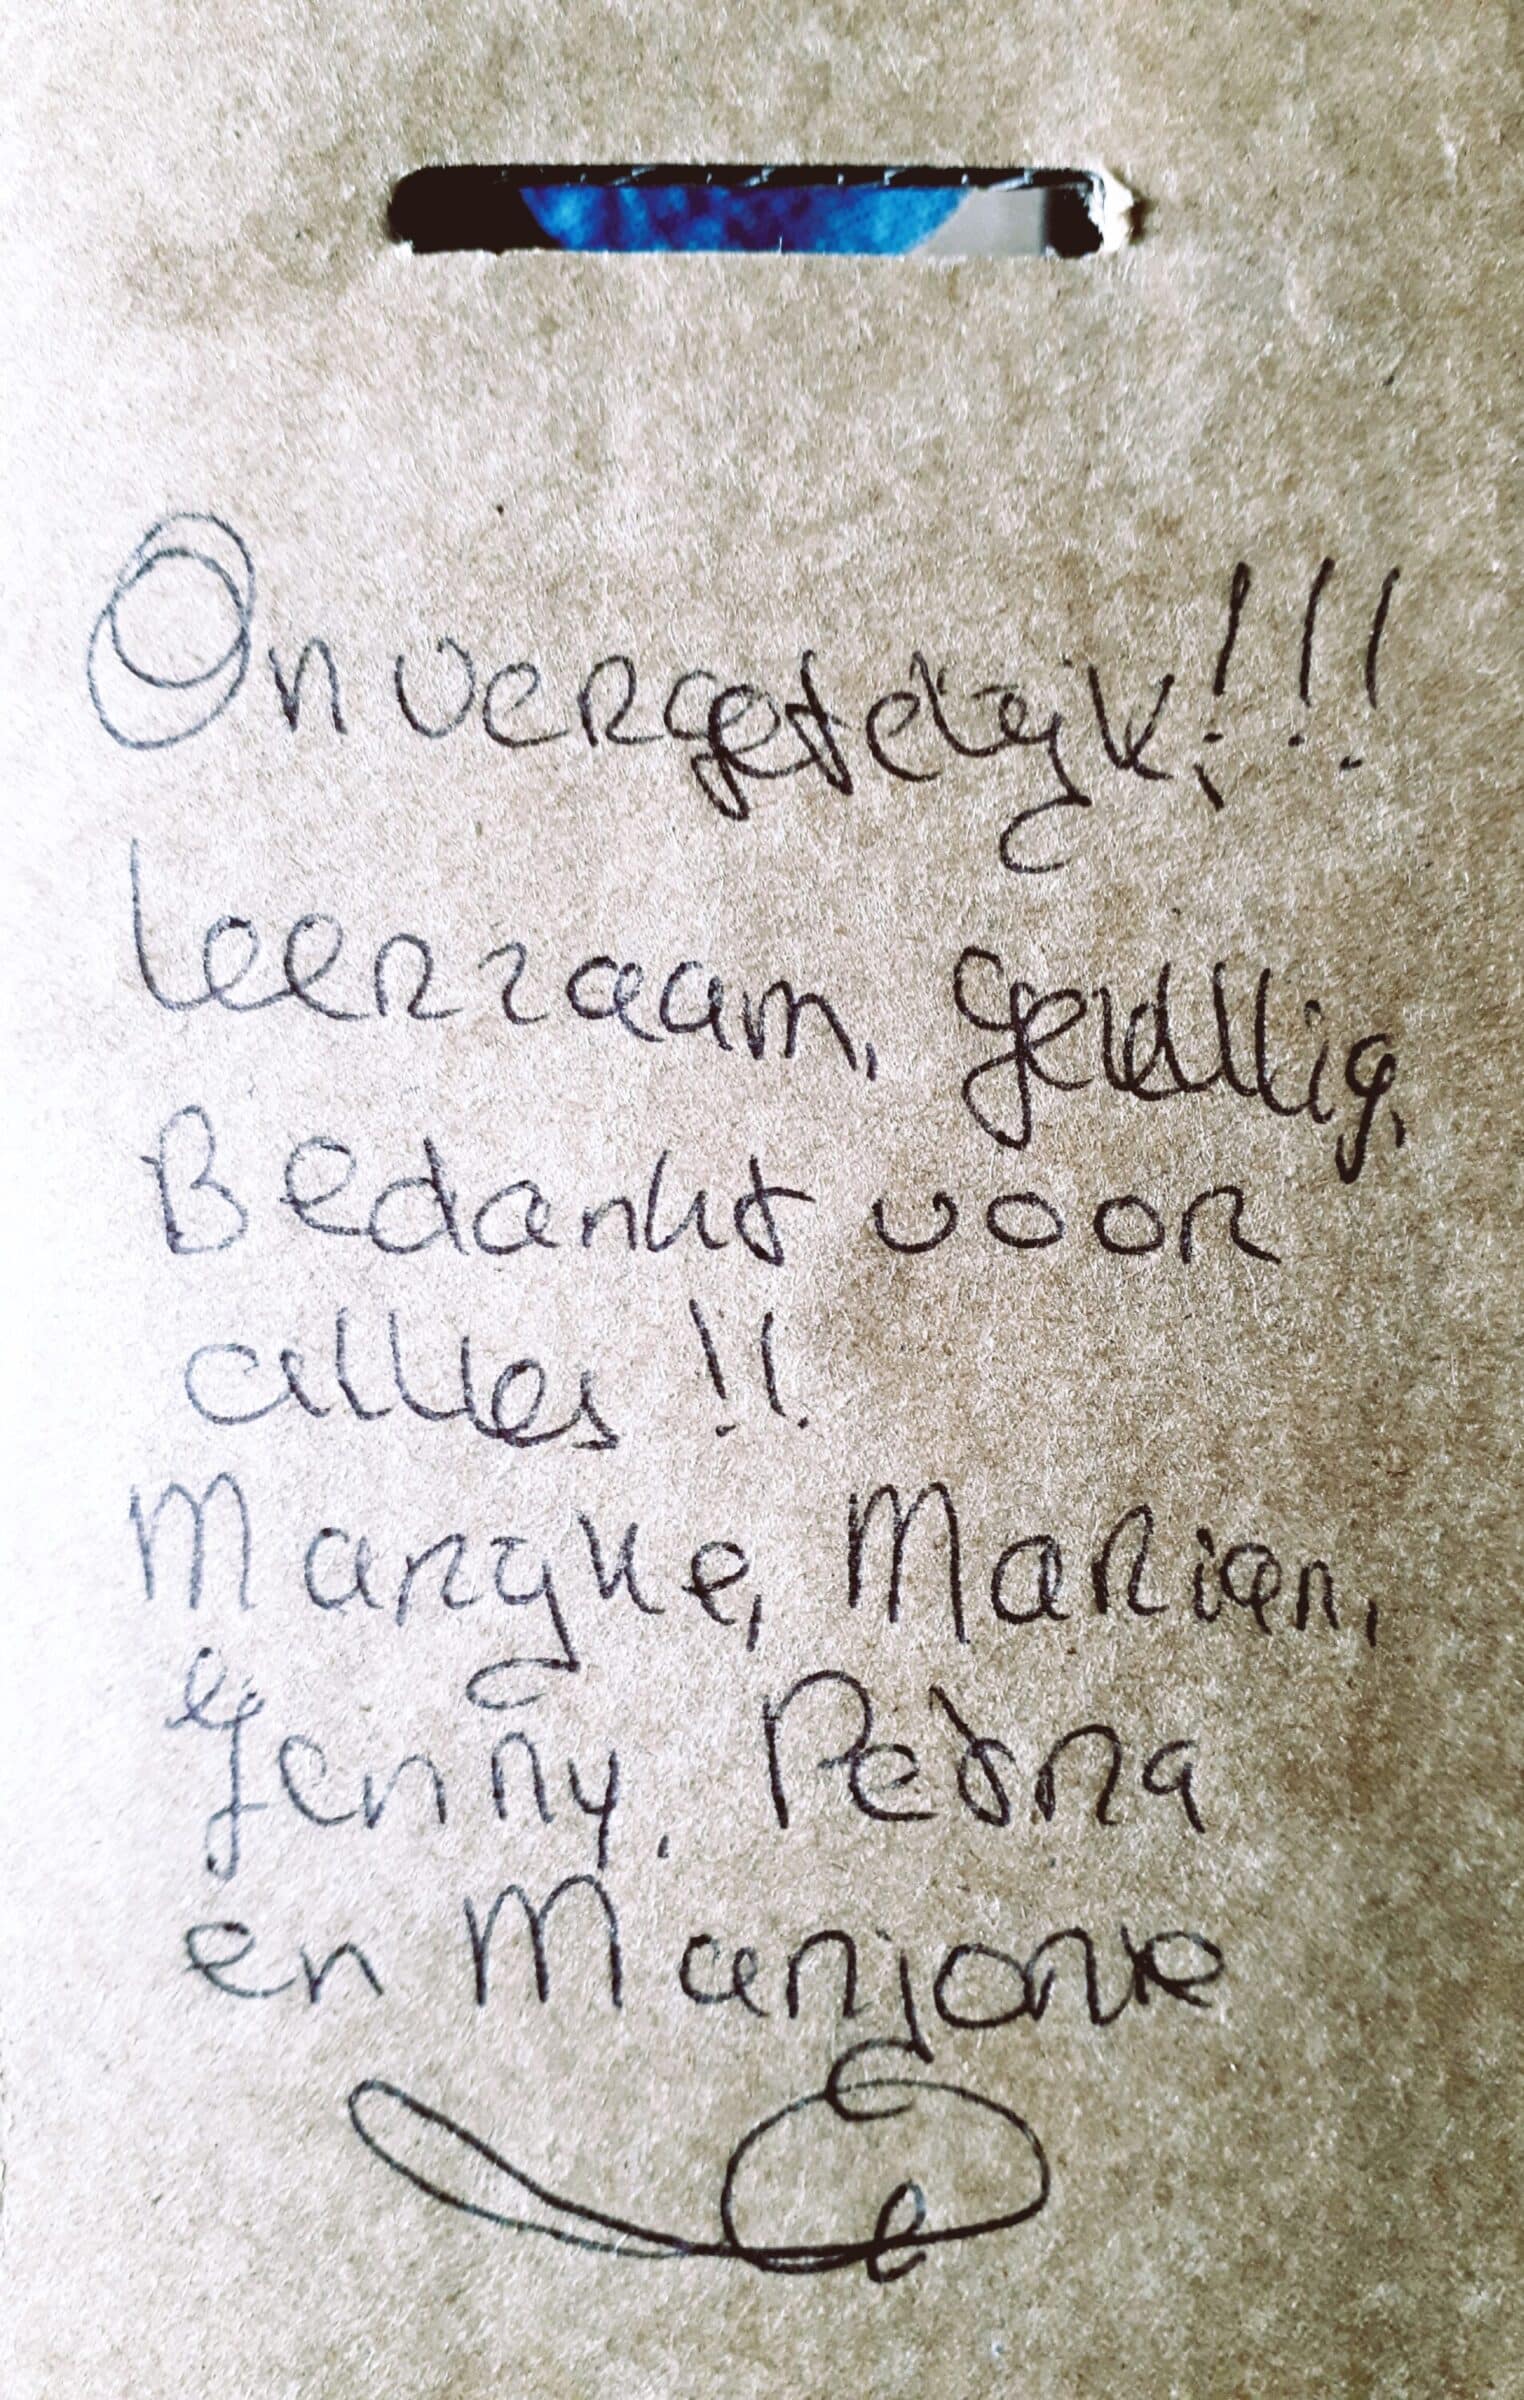 Onvergetelijk!!!
Leerzaam, geldllig,
Bedankt voor
alles!!
Marijke, Marian,
Jenny, Petra
en Marjorie